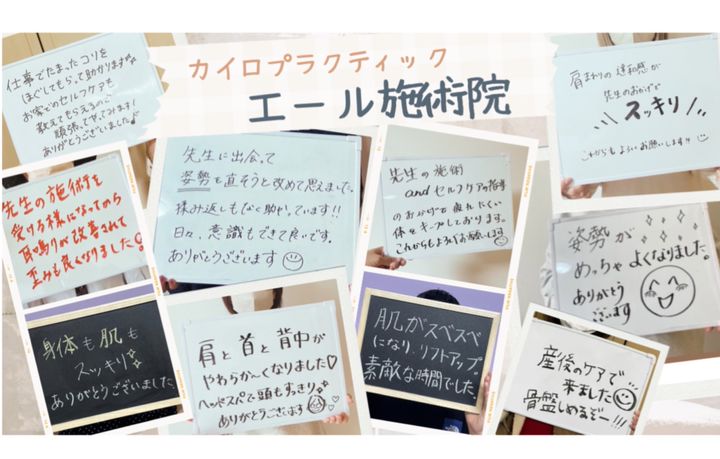 カイロプラクティック
エール施術院
仕事でたまったコリを
ほぐしてもらって助かります
お家でのセルフケアも
教えてもらえるので
頑張ってやってみます!
ありがとうございました♪
先生に出会って
姿勢を直そうと改めて思えました。
揉み返しもなく助かっています!!
日々、意識もできて良いです。
ありがとうございます
先生の施術
andセルフケアの指導
のおかげで疲れにくい
体をキープしております。
これからもよろしくお願いします
肩まわりの違和感が
先生のおかげで
スッキリ
これからもよろしくお願いします!!
先生の施術を
受ける様になってから
耳鳴りが改善されて
歪みも良くなりました!
姿勢が
めっちゃよくなりました。
ありがとう
ございます
身体も肌も
スッキリ
ありがとうございました
肩と首と背中が
やわらか〜くなりました♡
ヘッドスパで頭もすっきり
ありがとうございます
肌がスベスベ
になり、リフトアップ。
素敵な時間でした。
産後のケアで
来ました
骨盤しめるぞー!!!